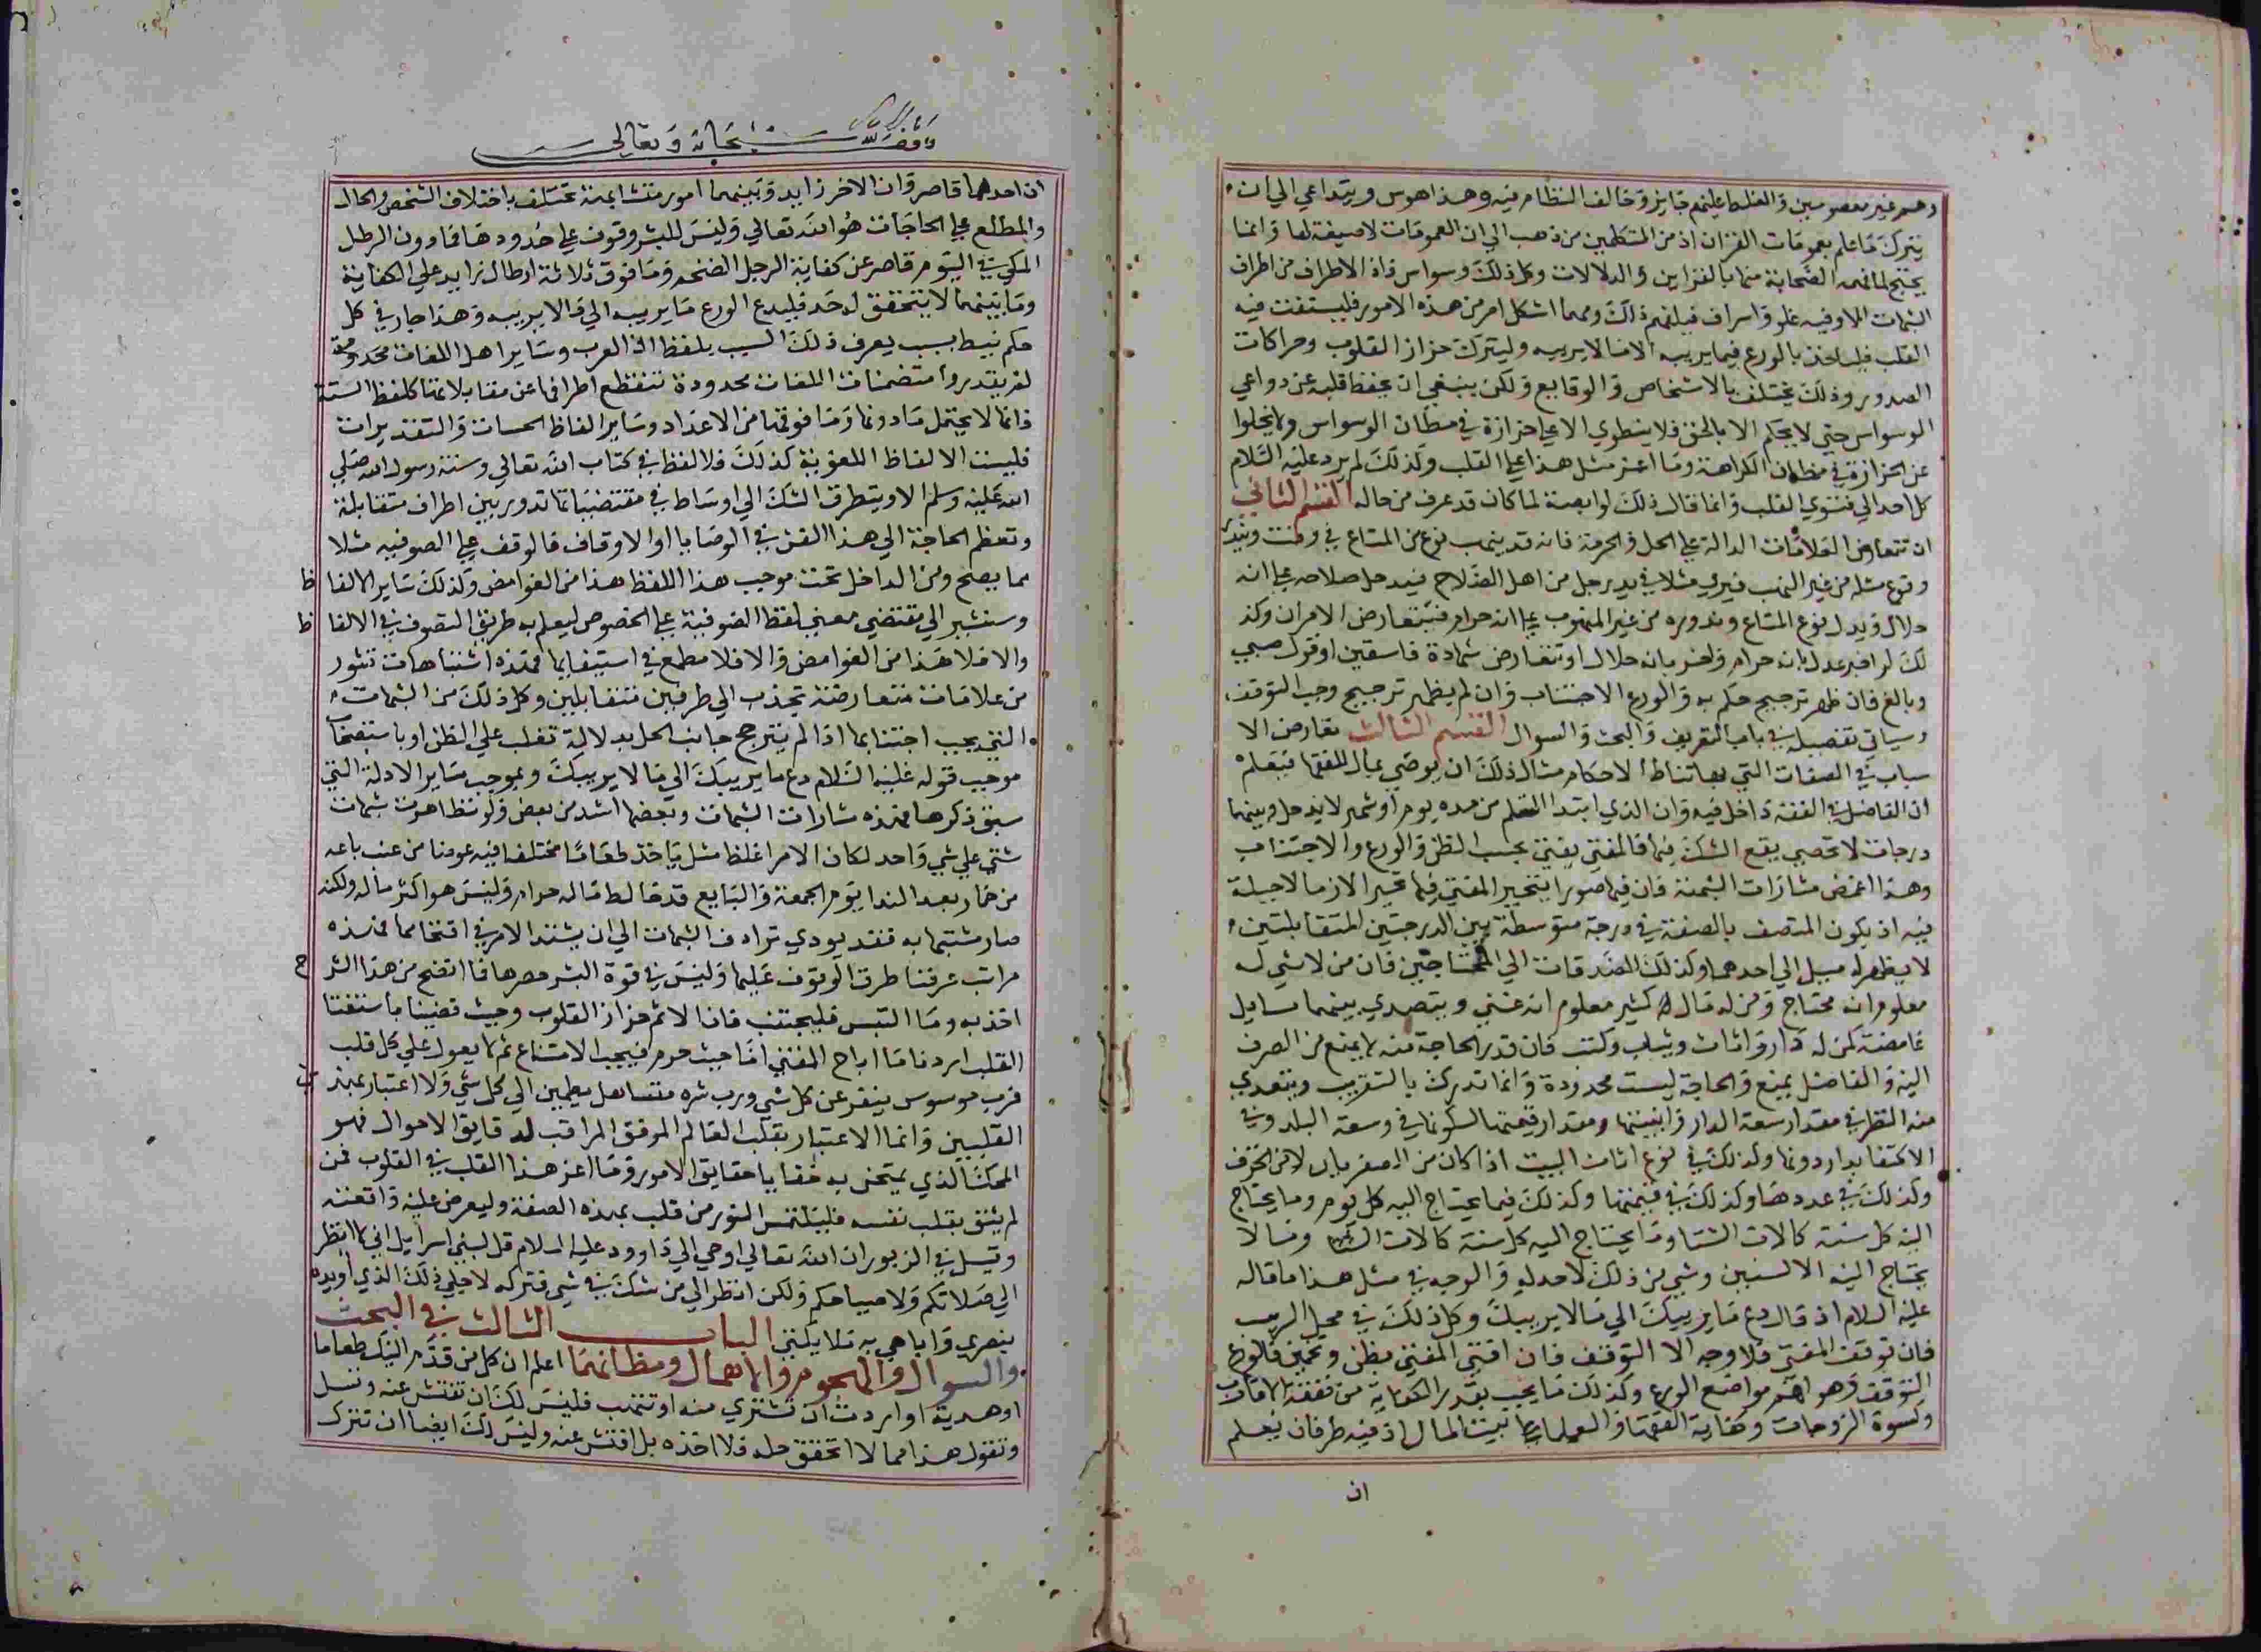 وهم غير معصومين والغلط عليهم جايز وخالف النظام فيه وهذا هوس ويتداعي الي ان
يترك ما علم بعمومات القران اذ من المتكلمين من ذهب الي ان العمومات لا صيغة لها وانما
يحتج لما فهمه الصحابة منها بالقراين والدلالات وكل ذلك وسواس فاذا لاطراف من اطراف
الشبهات الا وفيه غلو واسراف فيلفهم ذلك ومهما اشكل امر من هذه الامور فليستفت فيه
القلب فلياخذ بالورع فيما يريبه الا ما لا يريبه وليترك حزاز القلوب وحراكات
الصدور وذلك يختلف بالاشخاص والوقايع ولكن ينبغي ان يحفظ قلبه عن دواعي
الوسواس حتي لا يحكم الا بالحق فلا ينطوي الا علي حزازة في مظان الوسواس ولا يخلوا
عن الحزازة في مظان الكراهة وما اعز مثل هذا علي القلب وكذلك لم يرد عليه السلام
كل احد الي فتوي القلب وانما قال ذلك لوابصة لما كان قد عرف من حاله القسم الثاني
ان تتعارض العلامات الدالة علي الحل والحرمة فانه قد ينهب نوع من المتاع في وقت ويندر
وقوع مثله من غير النهب فيري مثلا في يد رجل من اهل الصلاح فيدل صلاحه علي انه
حلال ويدل نوع المتاع وندوره من غير المنهوب علي انه حرام فيتعارض الامران وكذ
لك لو اخبر عدل بانه حرام واخر بانه حلال او تتعارض شهادة فاسقين او قول صبي
وبالغ فان ظهر ترجيح حكم به والورع الاجتناب وان لم يظهر ترجيح وجب التوقف
وسياتي تفصيله في باب التعريف والبحث والسوال القسم الثالث تعارض الا
سباب في الصفات التي بها تناط الاحكام مثال ذلك ان يوصي بمال للفقها فيعلم
ان الفاضل في الفقه داخل فيه وان الذي ابتدا التعلم من مدة يوم او شهر لا يدخل وبينهما
درجات لا تحصي يقع الشك فيها فالمفتي يفتي بحسب الظن والورع والاجتناب
وهذا اغمض مثارات الشبهة فان فيها صورا يتحير المفتي فيها تحيرا لازما لا حيلة
فيه اذ يكون المتصف بالصفة في درجة متوسطة بين الدرجتين المتقابلتين
لا يظهر له ميل الي احدهما وكذلك الصدقات الي المحتاجين فان من لا شي له
معلوم انه محتاج ومن له مال كثير معلوم انه غني ويتصدي بينهما مسايل
غامضة كمن له دار واثاث وثياب وكتب فان قدر الحاجة منه لا يمنع من الصرف
اليه والفاضل يمنع والحاجة ليست محدودة وانما تدرك بالتقريب ويتعدي
منه النظر في مقدار سعة الدار وابنيتها ومقدار قيمتها لكونها في وسعة البلد وفي
الاكتفا بدار دونها وكذلك في نوع اثاث البيت اذا كان من الصفر لا من الخزف
وكذلك في عددها وكذلك في قيمتها وكذلك فيما يحتاج اليه كل يوم وما يحتاج
اليه كل سنة كالات الشتا وما يحتاج اليه كل سنة كالات وما لا
يحتاج اليه الا لسنين وشي من ذلك لا حد له والوجه في مثل هذا ما قاله
عليه السلام اذ قال دع ما يريبك الي ما لا يريبك وكل ذلك في محل الريب
فان توقف المفتي فلا وجه الا التوقف فان افتي المفتي بظن وتخمين فالورع
التوقف وهو اهم مواضع الورع وكذلك ما يجب بقدر الكفاية من نفقة الاقارب
وكسوة الزوجات وكفاية الفقها والعلما علي بيت المال اذ فيه طرفان يعلم
ان
وقف لله سبحانه وتعالى
ان احدهما قاصر وان الاخر زايد وبينهما امور متشابهة تختلف باختلاف الشخص والحال
والمطلع علي الحاجات هو الله تعالي وليس للبشر وقوف علي حدودها فما دون الرطل
المكي في اليوم قاصر عن كفاية الرجل الضخم وما فوق ثلاثة ارطال زايد علي الكفاية
وما بينهما لا يتحقق له حد فليدع الورع ما يريبه الي ما لا يريبه وهذا جار في كل
حكم نيط بسبب يعرف ذلك السبب بلفظ اذ العرب وساير اهل اللغات محدودة
لم يقدروا متضمنات اللغات بحدودة تنقطع اطرافها عن مقابلاتها كلفظ الستة
فانها لا يحتمل ما دونها وما فوقها من الاعداد وساير الفاظ الحساب والتقديرات
فليست الالفاظ اللغوية كذلك فلا لفظ في كتاب الله تعالي وسنة رسول الله صلي
الله عليه وسلم الا ويتطرق الشك الي اوساط في مقتضياتها تدور بين اطراف متقابلة
وتعظم الحاجة الي هذا الفن في الوصايا والاوقاف فالوقف علي الصوفيه مثلا
مما يصح ومن الداخل تحت موجب هذا اللفظ هذا من الغوامض وكذلك ساير الالفا ظ
وسنشير الي مقتضي معني لفظ الصوفية علي الخصوص ليعلم به طريق التصوف في الالفا ظ
والا فلا هذا من الغوامض والا فلا مطمع في استيفايها فهذه اشتباهات تثور
من علامات متعارضة تجذب الي طرفين متقابلين وكل ذلك من الشبهات
التي يجب اجتنابها اذا لم يترجح جانب الحل بدلالة تغلب علي الظن او باستصحاب
موجب قوله عليه السلام دع ما يريبك الي ما لا يريبك وبموجب ساير الادلة التي
سبق ذكرها فهذه مثارات الشبهات وبعضها اشد من بعض ولو تظاهرت شبهات
شتي علي شي واحد لكان الامر اغلظ مثل ياخذ طعاما مختلفا فيه عوضا من عنب باعه
من خمار بعد الندا يوم الجمعة والبايع قد خالط ماله حرام وليس هو اكثر ماله ولكنه
صار مشتبها به فقد يودي ترادف الشبهات الي ان يشتد الامر في اقتحامها فهذه
مراتب عرفنا طرق الوقوف عليها وليس في قوة البشر حصرها فما اتضح من هذا الشر ح
اخذ به وما التبس فليجتنب فان الاثم حزاز القلوب وحيث قضينا باستفتا
القلب اردنا ما اباح المفتي اما حيث حرم فيجب الامتناع ثم لا يعول علي كل قلب
فرب موسوس ينفر عن كل شي ورب شره متساهل يطمين الي كل شي ولا اعتبار بهذ ين
القلبين وانما الاعتبار بقلب العالم الموفق المراقب لدقايق الاحوال فهو
المحك الذي يمتحن به خفايا حقايق الامور وما اعز هذا القلب في القلوب فمن
لم يثق بقلب نفسه فليلتمس النور من قلب بهذه الصفة وليعرض عليه واقعته
وقيل في الزبور ان الله تعالي اوحي الي داوود عليه السلام قل لبني اسرايل اني لا انظر
الي صلاتكم ولا صيامكم ولكن انظر الي من شك في شي فتركه لاجلي ذلك الذي اويده
بنصري واباهي به ملايكتي الباب الثالث في البحث
والسوال والهجوم والاهمال ومظانهما اعلم ان كل من قدم اليك طعاما
او هدية او اردت ان تشتري منه او تتهب فليس لك ان تفتش عنه وتسل
وتقول هذا مما لا اتحقق حله فلا اخذه بل افتش عنه وليس لك ايضا ان تترك